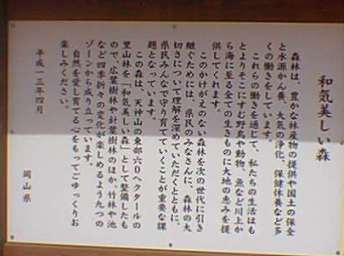 和気美しい森
森林は、豊かな林産物の提供や国土の保全
と水源かん養、大気の浄化、保健休養など多
くの働きをしています。
これらの働きを通じて、私たちの生活はも
とよりそこにすむ野鳥や動物、魚など川上か
ら海に至る全ての生きものに大地の恵みを提
供してくれます。
このかけがえのない森林を次の世代に引き
継ぐためには、県民のみなさんに、森林の大
切さについて理解を深めていただくとともに、
県民みんなで守り育てていくことが重要な課
題となっています。
この森は、天神山の東部六〇ヘクタールの
里山林を「和気美しい森」として整備したも
ので、広葉樹林や針葉樹林のほか、竹林や池
など四季折々の変化が楽しめるよう九つの
ゾーンから成り立っています。
自然を愛し育てる心をもってごゆっくりお
楽しみください。
平成一三年四月
岡山県